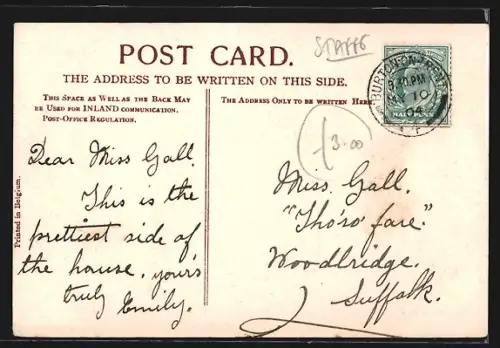 POST CARD.
STAFFS
THE ADDRESS TO BE WRITTEN ON THIS SIDE.
THIS SPACE AS WELL AS THE BACK MAY
BE USED FOR INLAND COMMUNICATION.
POST-OFFICE REGULATION.
THE ADDRESS ONLY TO BE WRITTEN HERE.
BURTON-ON-TRENT
PM
10
HALFPENNY
£3.00
Dear Miss Gall.
This is the
prettiest side of
the house. your's
truly Emily.
Miss. Gall.
"Tho'ro' fare."
Woodbridge.
Suffolk.
Printed in Belgium.